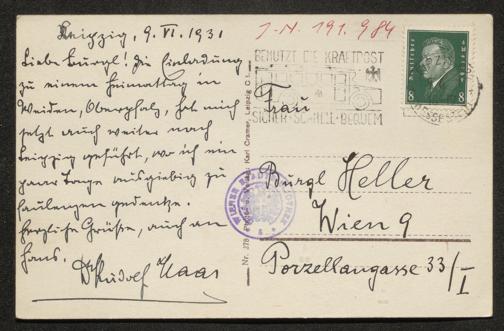 Leipzig, 9. VI. 1931
Liebe Burgl! Die Einladung
zu einem Heimattag in
Weiden, Oberpfalz, hat mich
jetzt auch weiter nach
Leipzig geführt, wo ich ein
paar Tage ausgiebig zu
faulenzen gedenke.
Herzliche Grüße, auch an
Hans.
Dr Rudolf Haas
J.N. 191.984
BENUTZT DIE KRAFTPOST
SICHER·SCHNELL·BEQUEM
Deutsches Reich
8 8
Frau
Burgl Heller
Wien 9
Porzellangasse 33/I
WIENER
Karl Cramer, Leipzig
Nr. 278